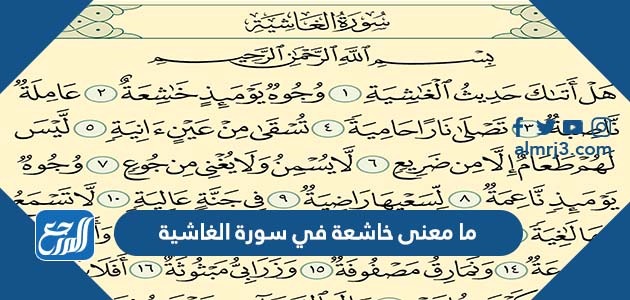 سُورَةُ الْغَاشِيَةِ
بِسْمِ اللَّهِ الرَّحْمَٰنِ الرَّحِيمِ
هَلْ أَتَىٰكَ حَدِيثُ ٱلْغَٰشِيَةِ ١ وُجُوهٌ يَوْمَئِذٍ خَٰشِعَةٌ ٢ عَامِلَةٌ
نَّاصِبَةٌ ٣ تَصْلَىٰ نَارًا حَامِيَةً ٤ تُسْقَىٰ مِنْ عَيْنٍ ءَانِيَةٍ ٥ لَّيْسَ
almrj3.com
لَهُمْ طَعَامٌ إِلَّا مِن ضَرِيعٍ ٦ لَّا يُسْمِنُ وَلَا يُغْنِي مِن جُوعٍ ٧ وُجُوهٌ
يَوْمَئِذٍ نَّاعِمَةٌ ٨ لِّسَعْيِهَا رَاضِيَةٌ ٩ فِي جَنَّةٍ عَالِيَةٍ ١٠ لَّا تَسْمَعُ
لَٰغِيَةً
ما معنى خاشعة في سورة الغاشية
المرجع
١٤ وَنَمَارِقُ مَصْفُوفَةٌ ١٥ وَزَرَابِيُّ مَبْثُوثَةٌ ١٦ أَفَلَا